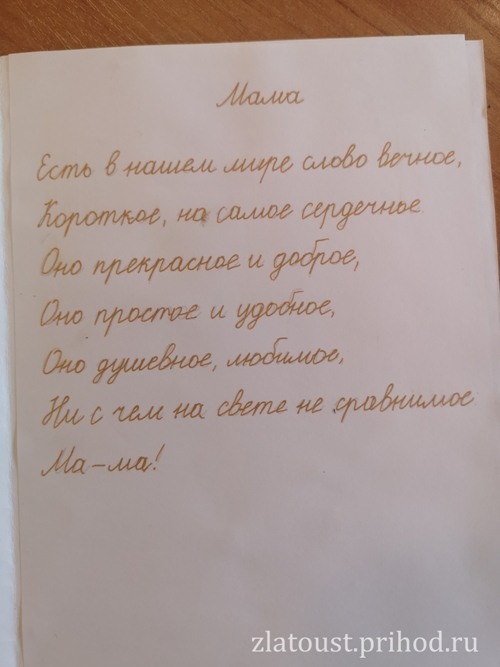 Мама
Есть в нашем мире слово вечное,
Короткое, на самое сердечные
Оно прекрасное и доброе,
Оно простое и удобное,
Оно душевное, любимое,
Ни с чем на свете не сравнимое
Ма-ма!
zlatoust.prihod.ru